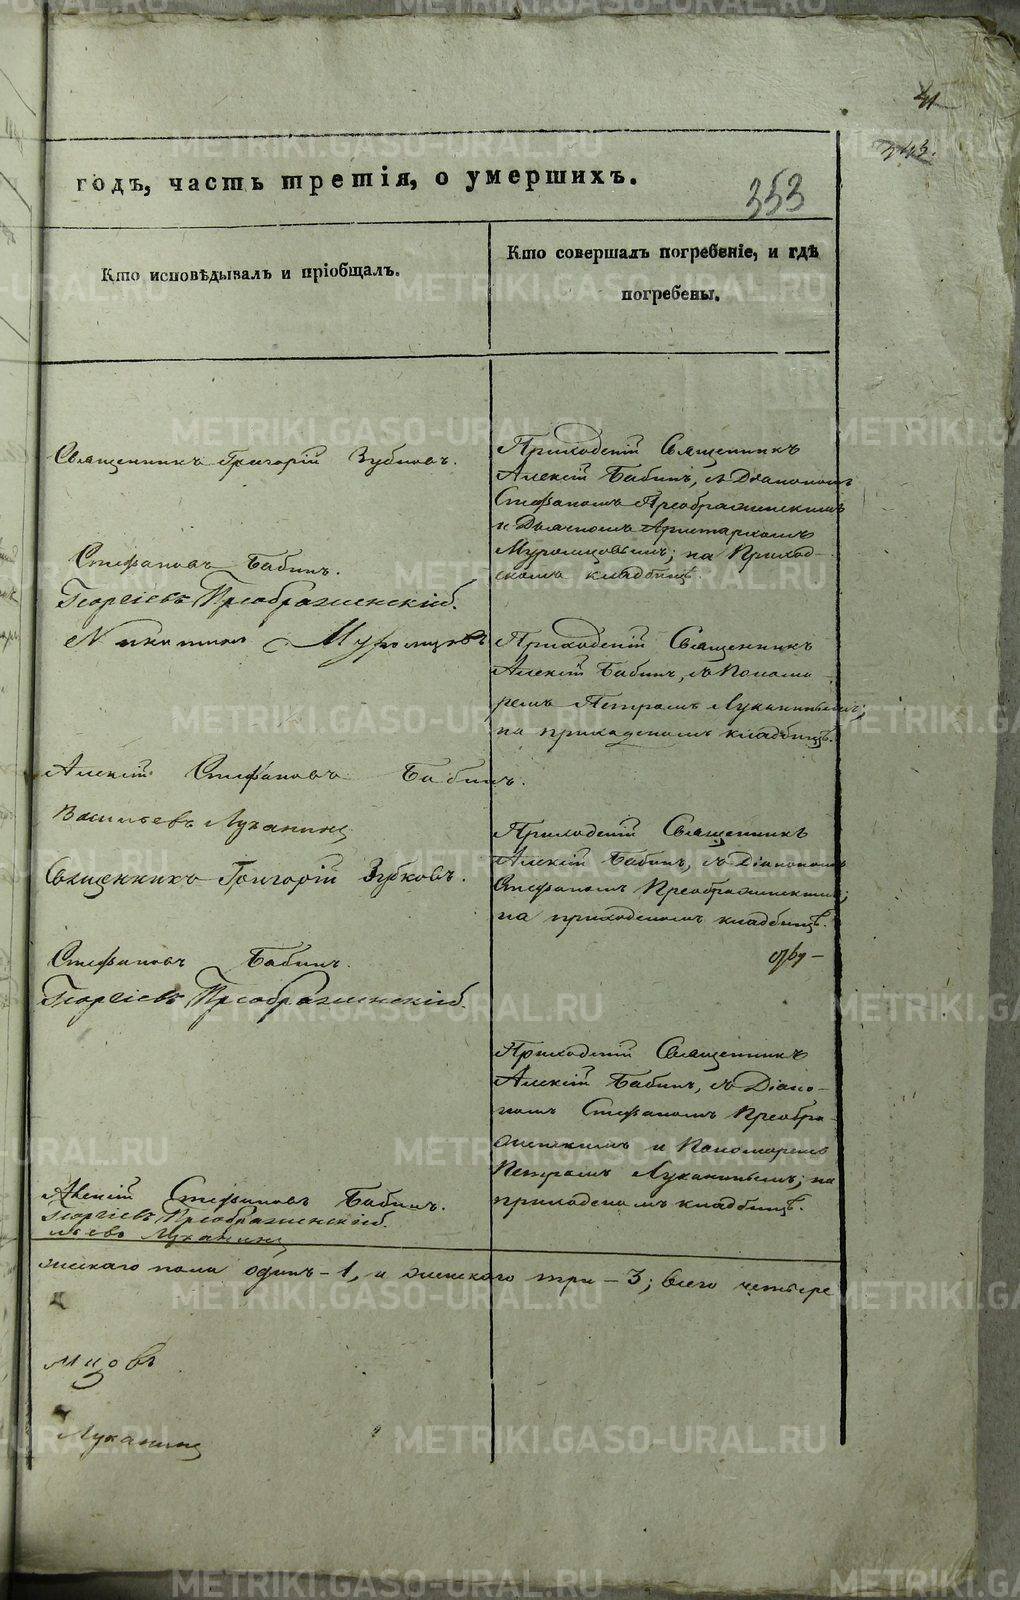 41
343.
годъ, часть третія, о умершихъ.
353
Кто исповѣдывалъ и пріобщалъ.
Кто совершалъ погребеніе, и гдѣ
погребены.
Священникъ Григорій Зубковъ.
Приходскій Священникъ
Алексій Бабинъ, съ Діакономъ
Стефаномъ Преображенскимъ
и Дьячкомъ Аристархомъ
Муромцовымъ; на Приход-
скомъ кладбищѣ.
Стефановъ Бабинъ.
Георгіевъ Преображенскій.
Муромцовъ
Приходскій Священникъ
Алексій Бабинъ, съ Понома-
ремъ Петромъ Луканинымъ;
на приходскомъ кладбищѣ.
Алексій Стефановъ Бабинъ.
Васильевъ Луканинъ
Священникъ Григорій Зубковъ.
Приходскій Священникъ
Алексій Бабинъ, съ Діакономъ
Стефаномъ Преображенскимъ;
на приходскомъ кладбищѣ.
Стефановъ Бабинъ.
Георгіевъ Преображенскій.
Приходскій Священникъ
Алексій Бабинъ, съ Діако-
номъ Стефаномъ Преобра-
женскимъ и Пономаремъ
Петромъ Луканинымъ; на
приходскомъ кладбищѣ.
Алексій Стефановъ Бабинъ.
Георгіевъ Преображенскій.
льевъ Луканинъ
жескаго пола одинъ - 1, и женскаго три - 3; всего четыре
мцовъ
Луканинъ
METRIKI.GASO-URAL.RU